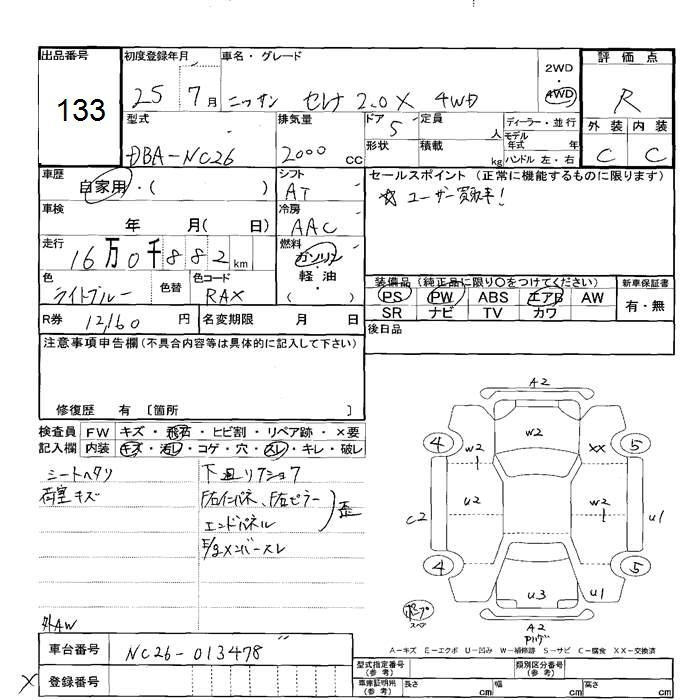 出品番号 初度登録年月 車名・グレード 2WD 4WD 評価点
133 25 7月 ニッサン セレナ 2.0X 4WD R
型式 排気量 ドア 5 定員 人 ディーラー・並行 モデル年式 年 外装 内装
DBA-NC26 2000 cc 形状 積載 kg ハンドル 左・右 C C
車歴 自家用・( ) シフト AT セールスポイント (正常に機能するものに限ります)
車検 年 月( 日) 冷房 AAC ☆ ユーザー買取車!
走行 16万0千882km 燃料 ガソリン・軽油 ( )
色 ライトブルー 色替 色コード RAX
装備品 (純正品に限り〇をつけてください) 新車保証書
PS PW ABS エアB AW 有・無
SR ナビ TV カワ
R券 12,160円 名変期限 月 日 後日品
注意事項申告欄(不具合内容等は具体的に記入して下さい)
修復歴 有 〔箇所 〕
検査員 FW キズ・飛石・ヒビ割・リペア跡・×要
記入欄 内装 キズ・汚レ・コゲ・穴・スレ・キレ・破レ
シートヘタリ
荷室キズ
下廻リ
エンドパネル
歪
外AW
A2
4 W2 W2 XX 5
C2 U2 W2 U1
4 U3 U1 5
A2
スペア
A-キズ E-エクボ U-凹み W-補修跡 S-サビ C-腐食 XX-交換済
車台番号 NC26-013478
× 登録番号
型式指定番号(参考) 類別区分番号(参考)
車庫証明用(参考) 長さ cm 幅 cm 高さ cm